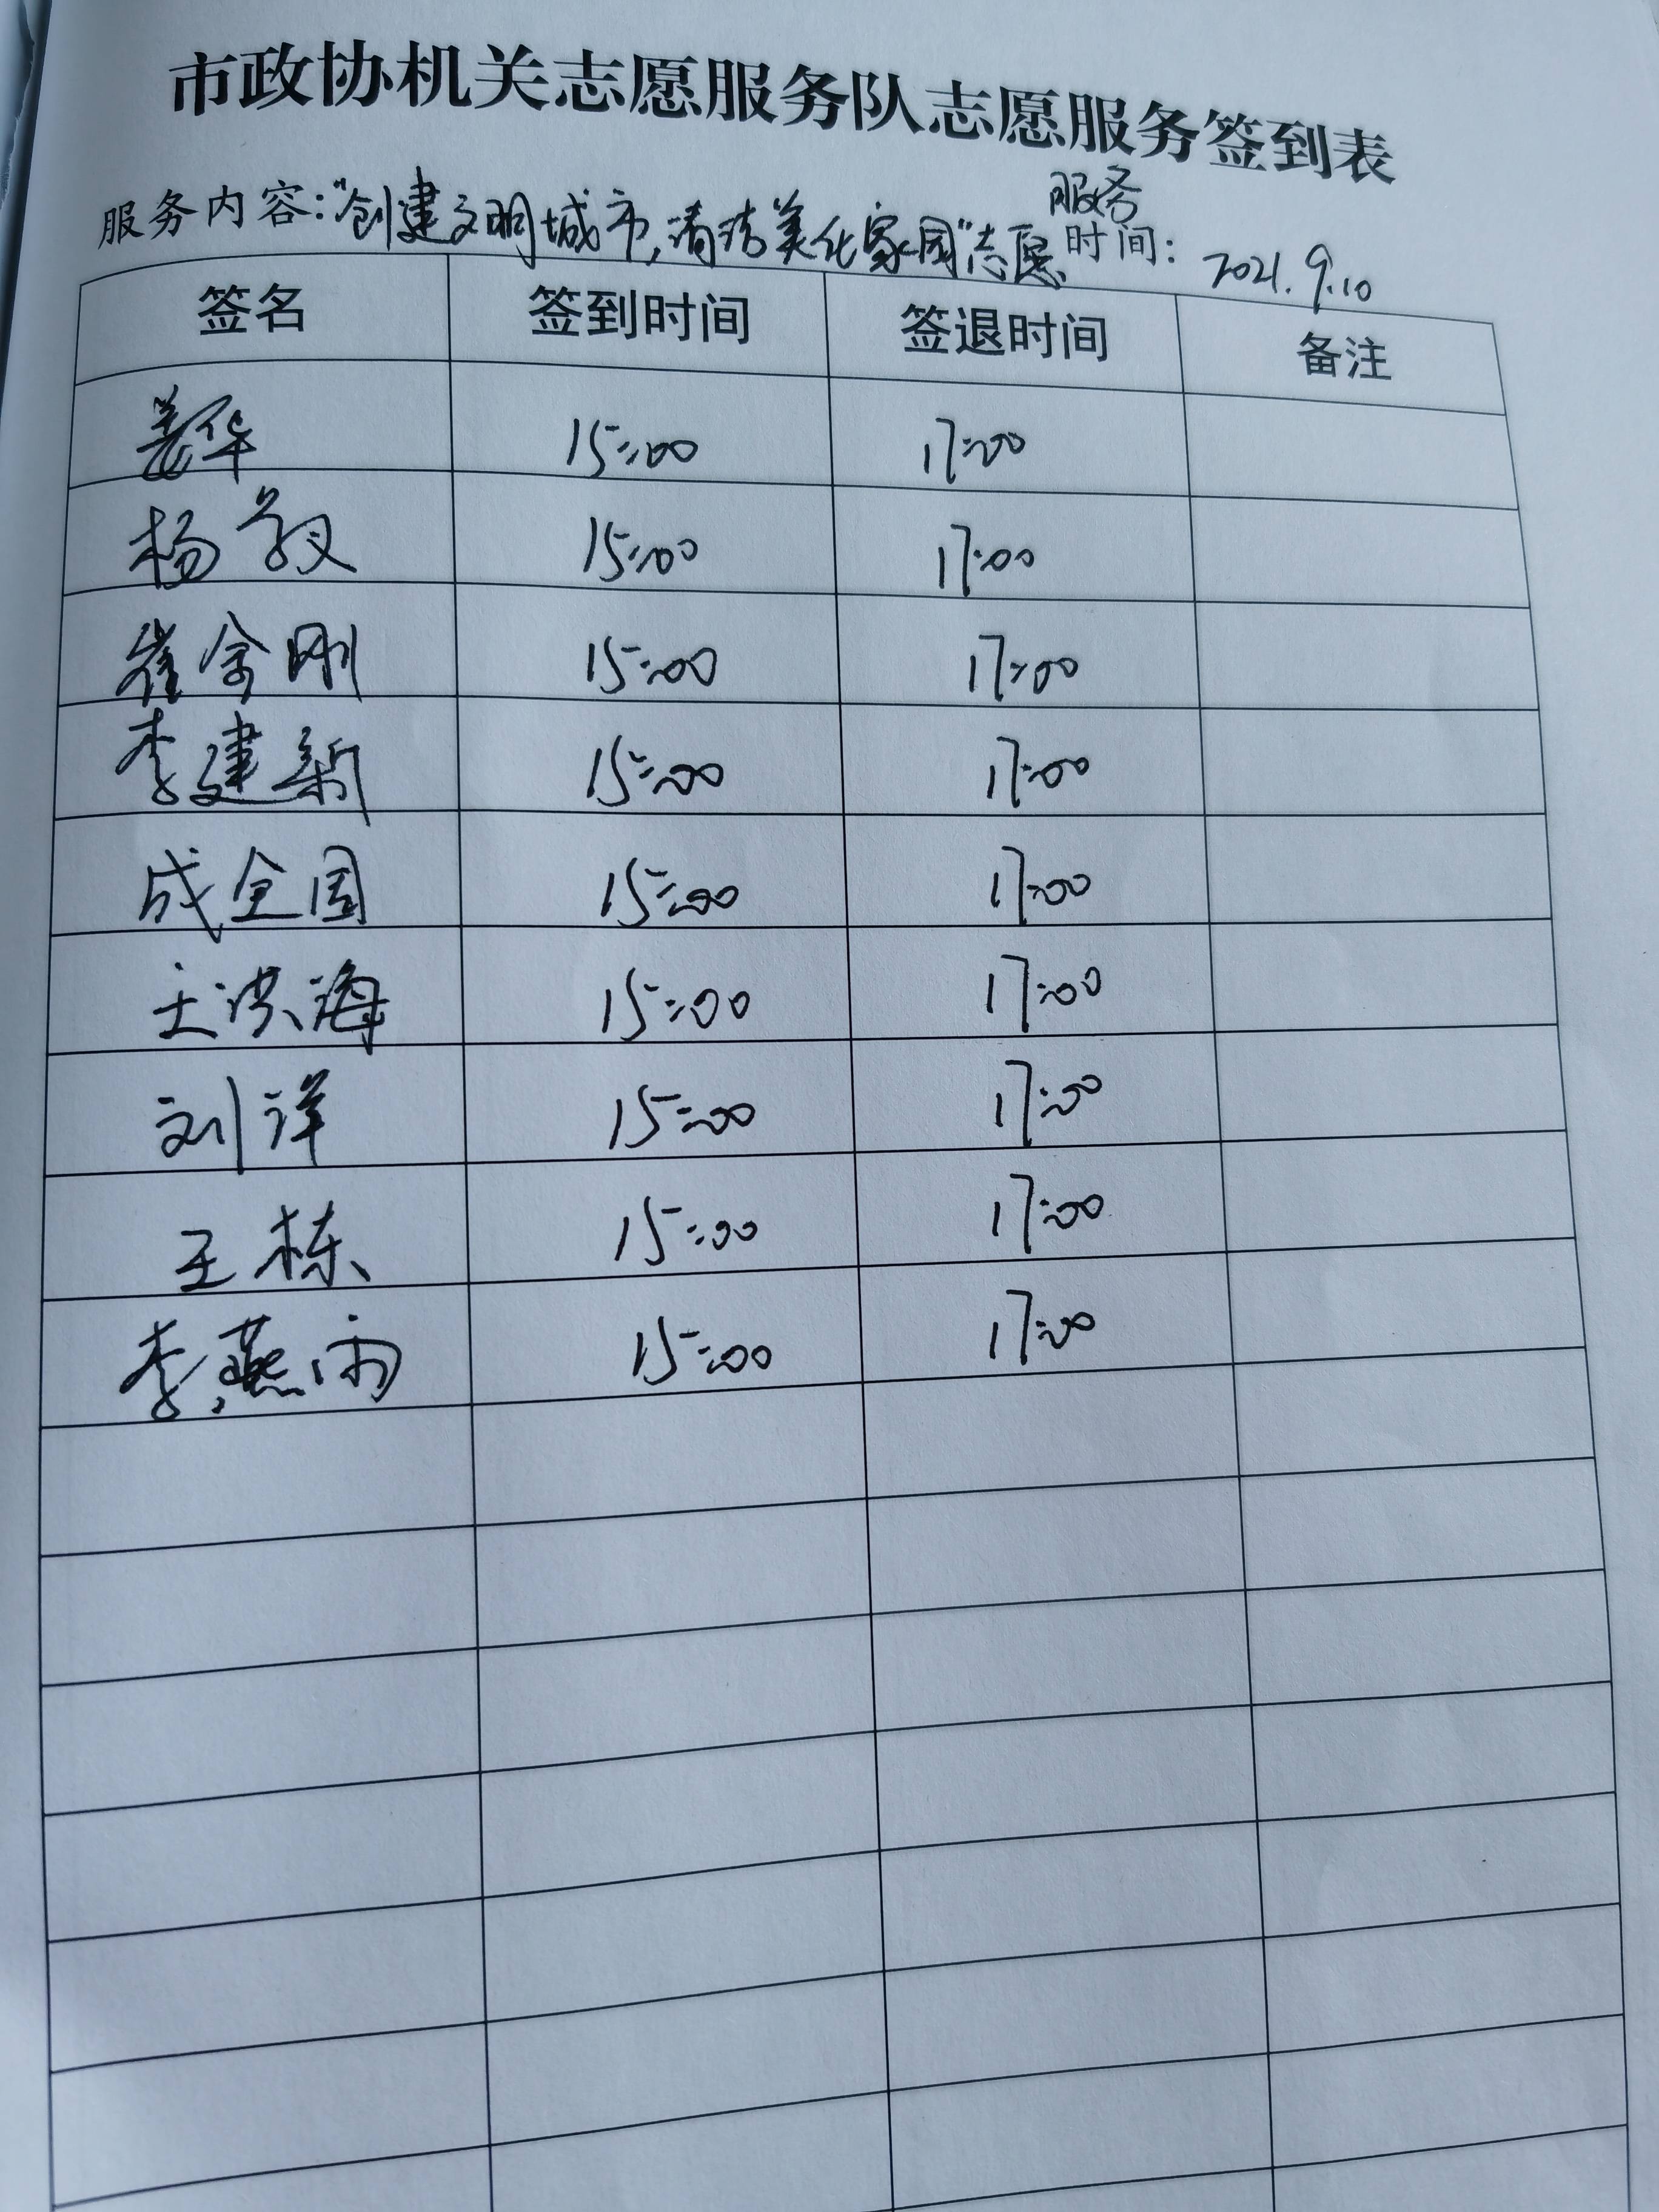 市政协机关志愿服务队志愿服务签到表
服务内容:“创建文明城市,清洁美化家园”志愿服务 时间: 2021.9.10
签名 签到时间 签退时间 备注
姜华 15:00 17:00
杨敏 15:00 17:00
崔金刚 15:00 17:00
李建新 15:00 17:00
成全国 15:00 17:00
王洪海 15:00 17:00
刘洋 15:00 17:00
王栋 15:00 17:00
李燕雨 15:00 17:00